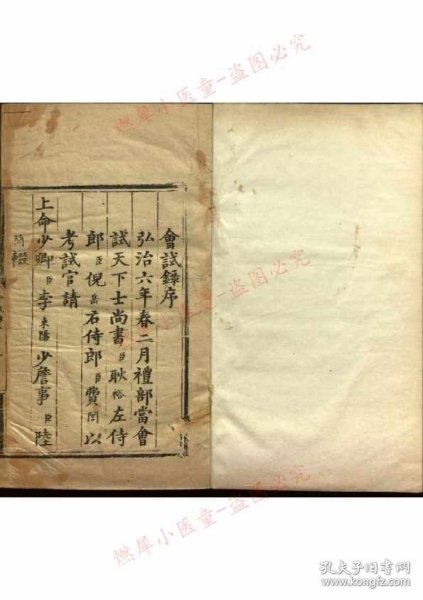 燃犀小医童-盗图必究
會試錄序
弘治六年春二月禮部當會
試天下士尚書臣耿裕左侍
郎臣倪岳右侍郎臣費誾以
考試官請
上命少卿臣李東陽少詹事臣陸
簡
燃犀小医童-盗图必究
燃犀小医童-盗图必究
孔夫子旧书网
www.kongfz.com